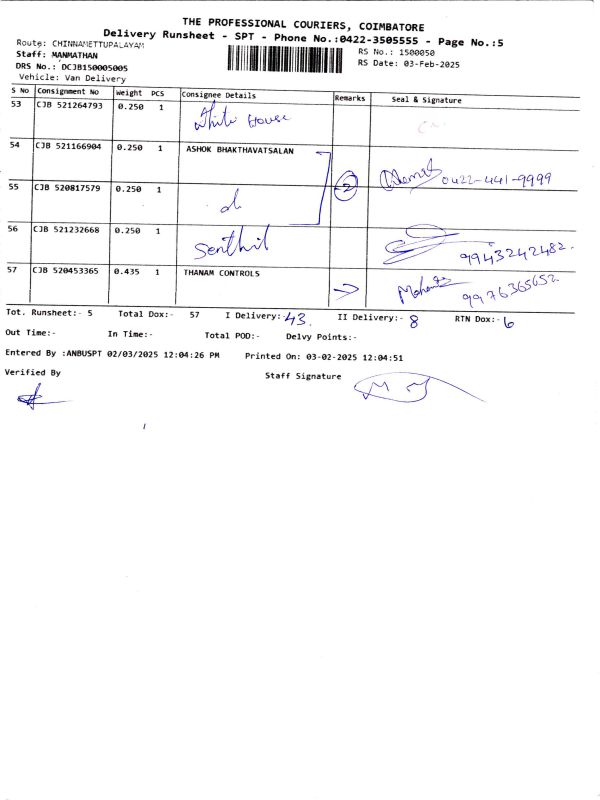 THE PROFESSIONAL COURIERS, COIMBATORE
Delivery Runsheet - SPT - Phone No.:0422-3505555 - Page No.:5
Route: CHINNAMETTUPALAYAM
Staff: MANMATHAN
DRS No.: DCJB150005005
Vehicle: Van Delivery
RS No.: 1500050
RS Date: 03-Feb-2025
S No Consignment No Weight PCS Consignee Details Remarks Seal & Signature
53 CJB 521264793 0.250 1 White House
54 CJB 521166904 0.250 1 ASHOK BHAKTHAVATSALAN
2 0422-441-9999
55 CJB 520817579 0.250 1 d
56 CJB 521232668 0.250 1 Senthil 9943242482.
57 CJB 520453365 0.435 1 THANAM CONTROLS 9976365652
Tot. Runsheet:- 5 Total Dox:- 57 I Delivery:- 43. II Delivery:- 8 RTN Dox:- 6
Out Time:- In Time:- Total POD:- Delvy Points:-
Entered By :ANBUSPT 02/03/2025 12:04:26 PM Printed On: 03-02-2025 12:04:51
Verified By Staff Signature